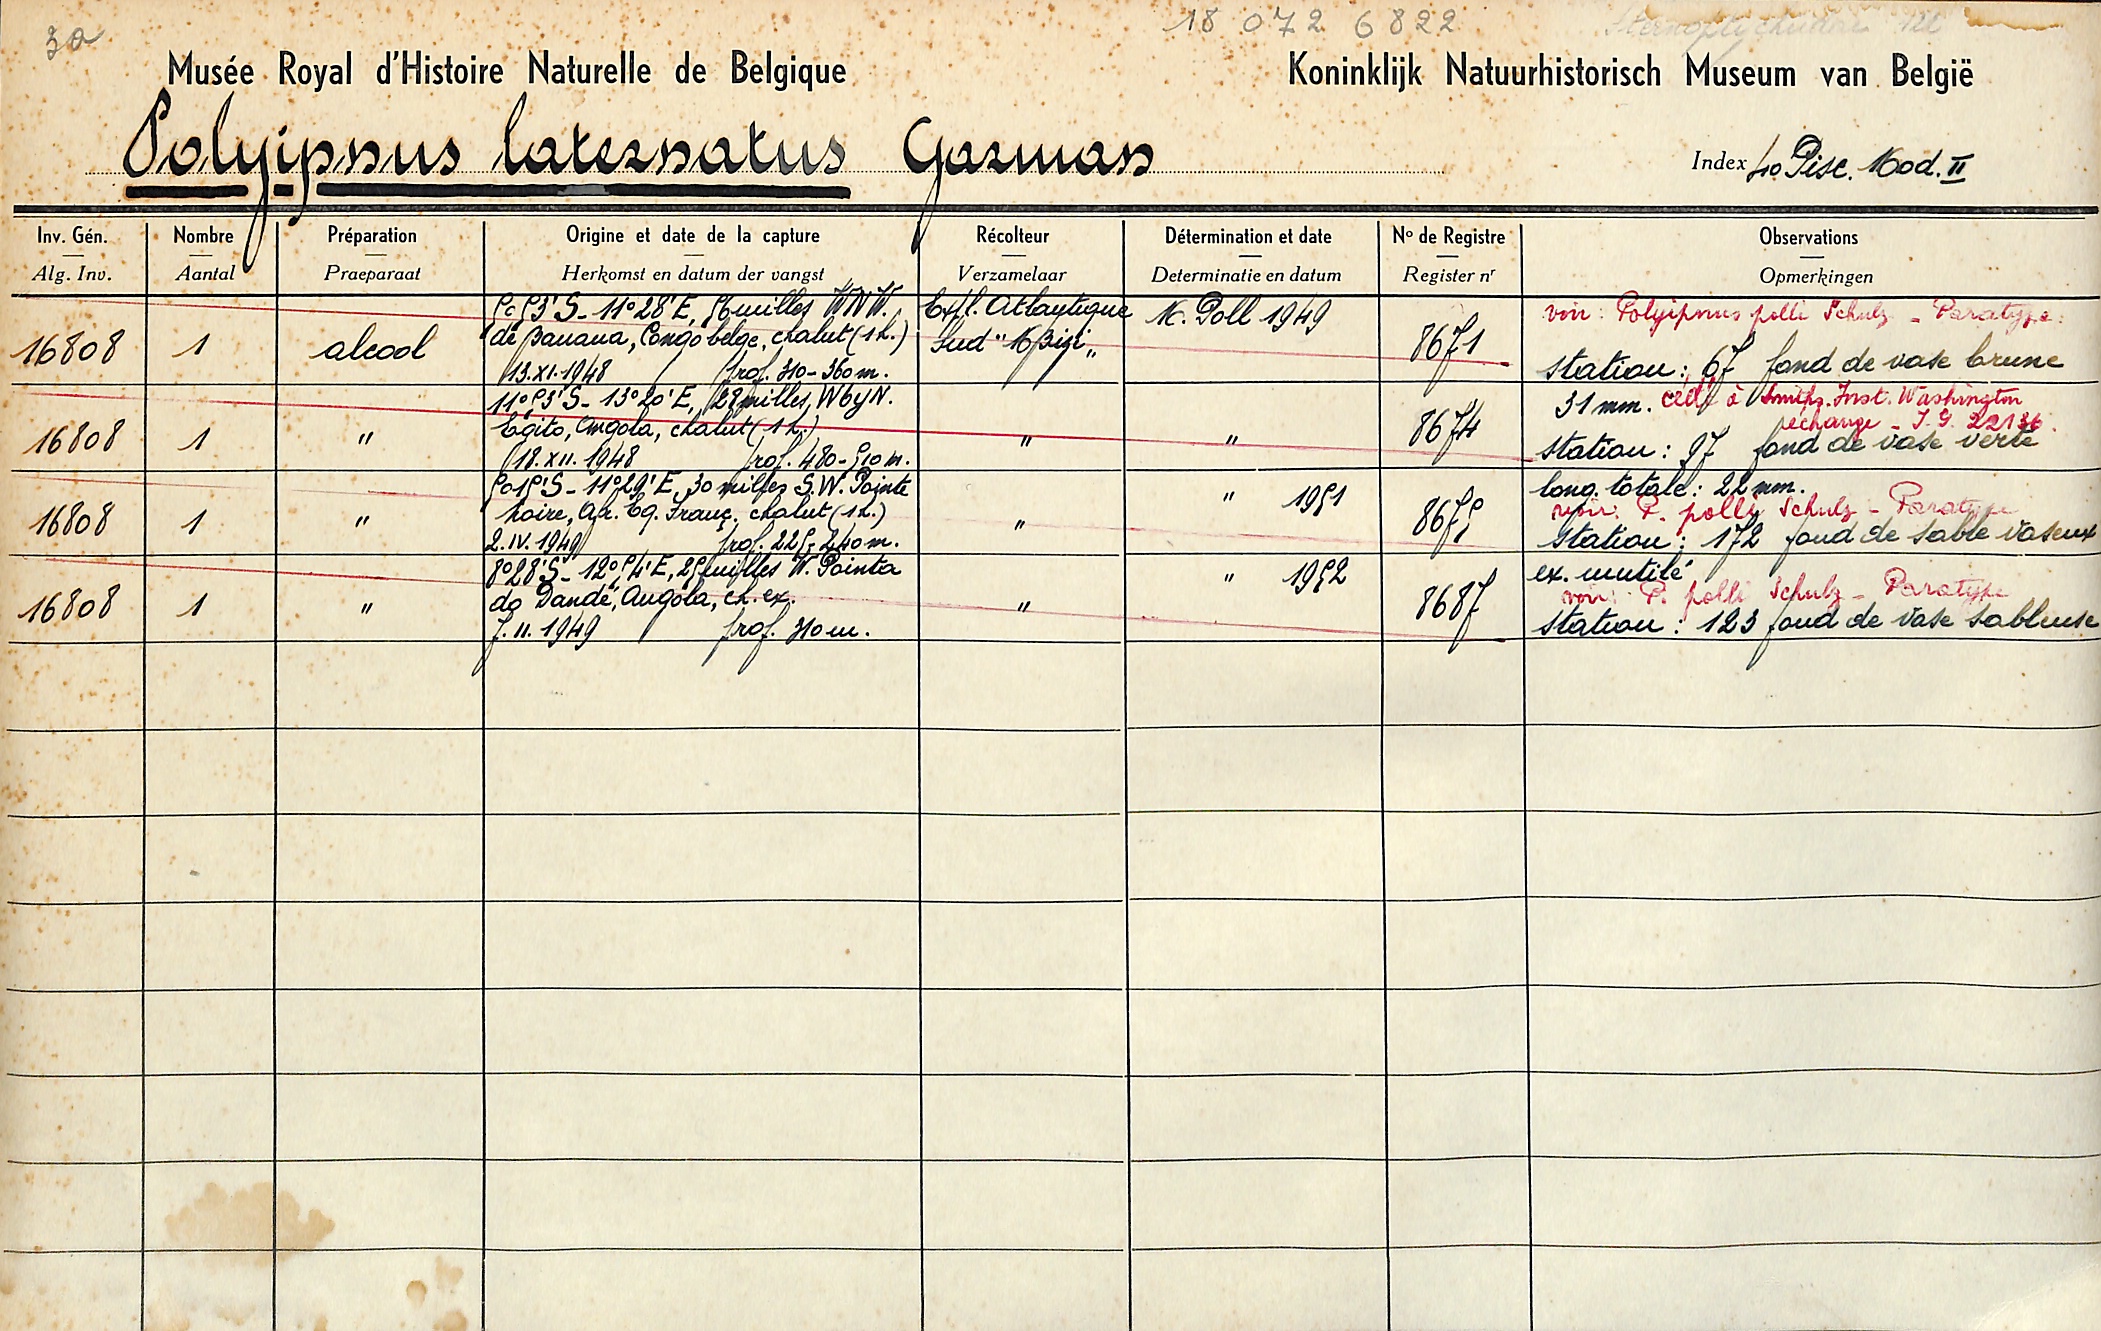 3a
18 072 6822
Musée Royal d'Histoire Naturelle de Belgique
Koninklijk Natuurhistorisch Museum van België
Polyipnus laternatus Garman
Index 40 Pisc. Mod. II
Inv. Gén. Nombre Préparation Origine et date de la capture Récolteur Détermination et date No de Registre Observations
Alg. Inv. Aantal Praeparaat Herkomst en datum der vangst Verzamelaar Determinatie en datum Register nr Opmerkingen
5°53'S - 11°28'E, 56 milles W.N.W. Exp. Atlantique M. Poll 1949 voir: Polyipnus polli Schulz - Paratype.
16808 1 alcool de Banana, Congo belge, chalut (1 h.) Sud "M'Bizi" 8671
13.XI.1948 prof. 310-360 m. station: 67 fond de vase brune
11°53'S - 13°20'E, 28 milles, WbyN. 31 mm. cédé à Smiths. Inst. Washington
échange - I.G. 22136.
16808 1 " Egito, Angola, chalut (1 h.) " " 8674
18.XII.1948 prof. 480-510 m. station: 97 fond de vase verte
5°15'S - 11°29'E, 30 milles S.W. Pointe " 1951 long. totale: 22 mm.
voir: P. polli Schulz - Paratype
16808 1 " Noire, Afr. Eq. Franç. chalut (1 h.) " 8675
2.IV.1949 prof. 225-240 m. station: 172 fond de sable vaseux
8°28'S - 12°54'E, 25 milles W. Pointa " 1952 ex. mutilé
voir: P. polli Schulz - Paratype
16808 1 " do Dandé, Angola, ch. ex. " 8687
7.II.1949 prof. 310 m. station: 123 fond de vase sableuse